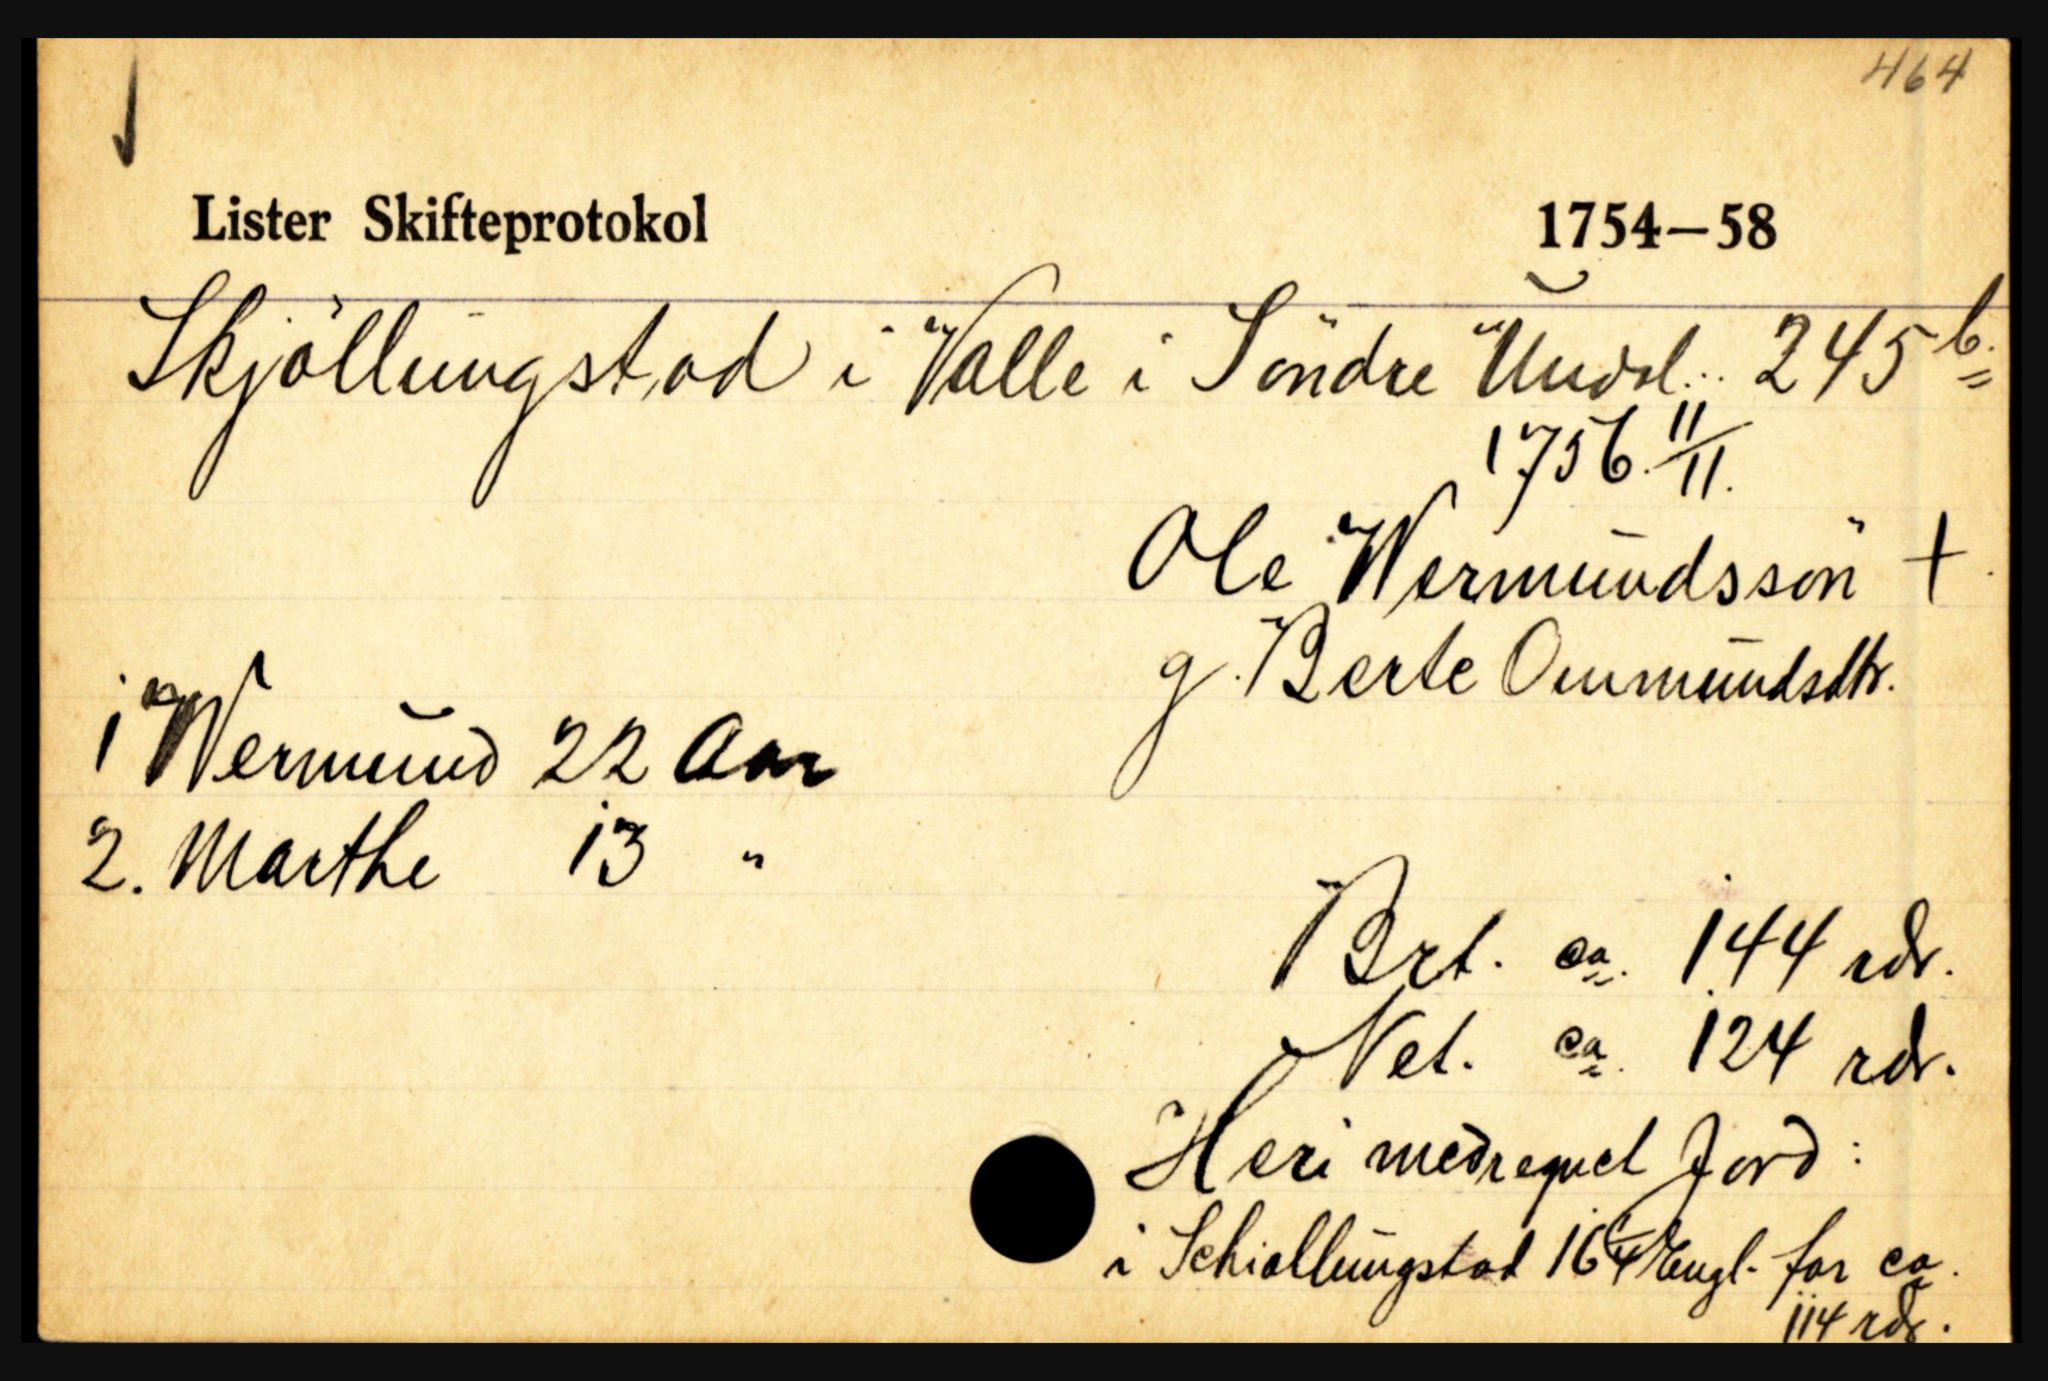 464
Lister Skifteprotokol 1754—58
Skjöllungstad i Valle i Söndre Undal.. 245 b.
1756. 11/11.
Ole Wermundssön +
g. Berte Ommundsdtr.
1 Wermund 22 Aar
2. Marthe 13 "
Brt. ca. 144 rdr.
Net. ca. 124 rdr.
Heri medregnet Jord:
i Schiallungstad 16 1/4 Engl. for ca.
114 rdr.